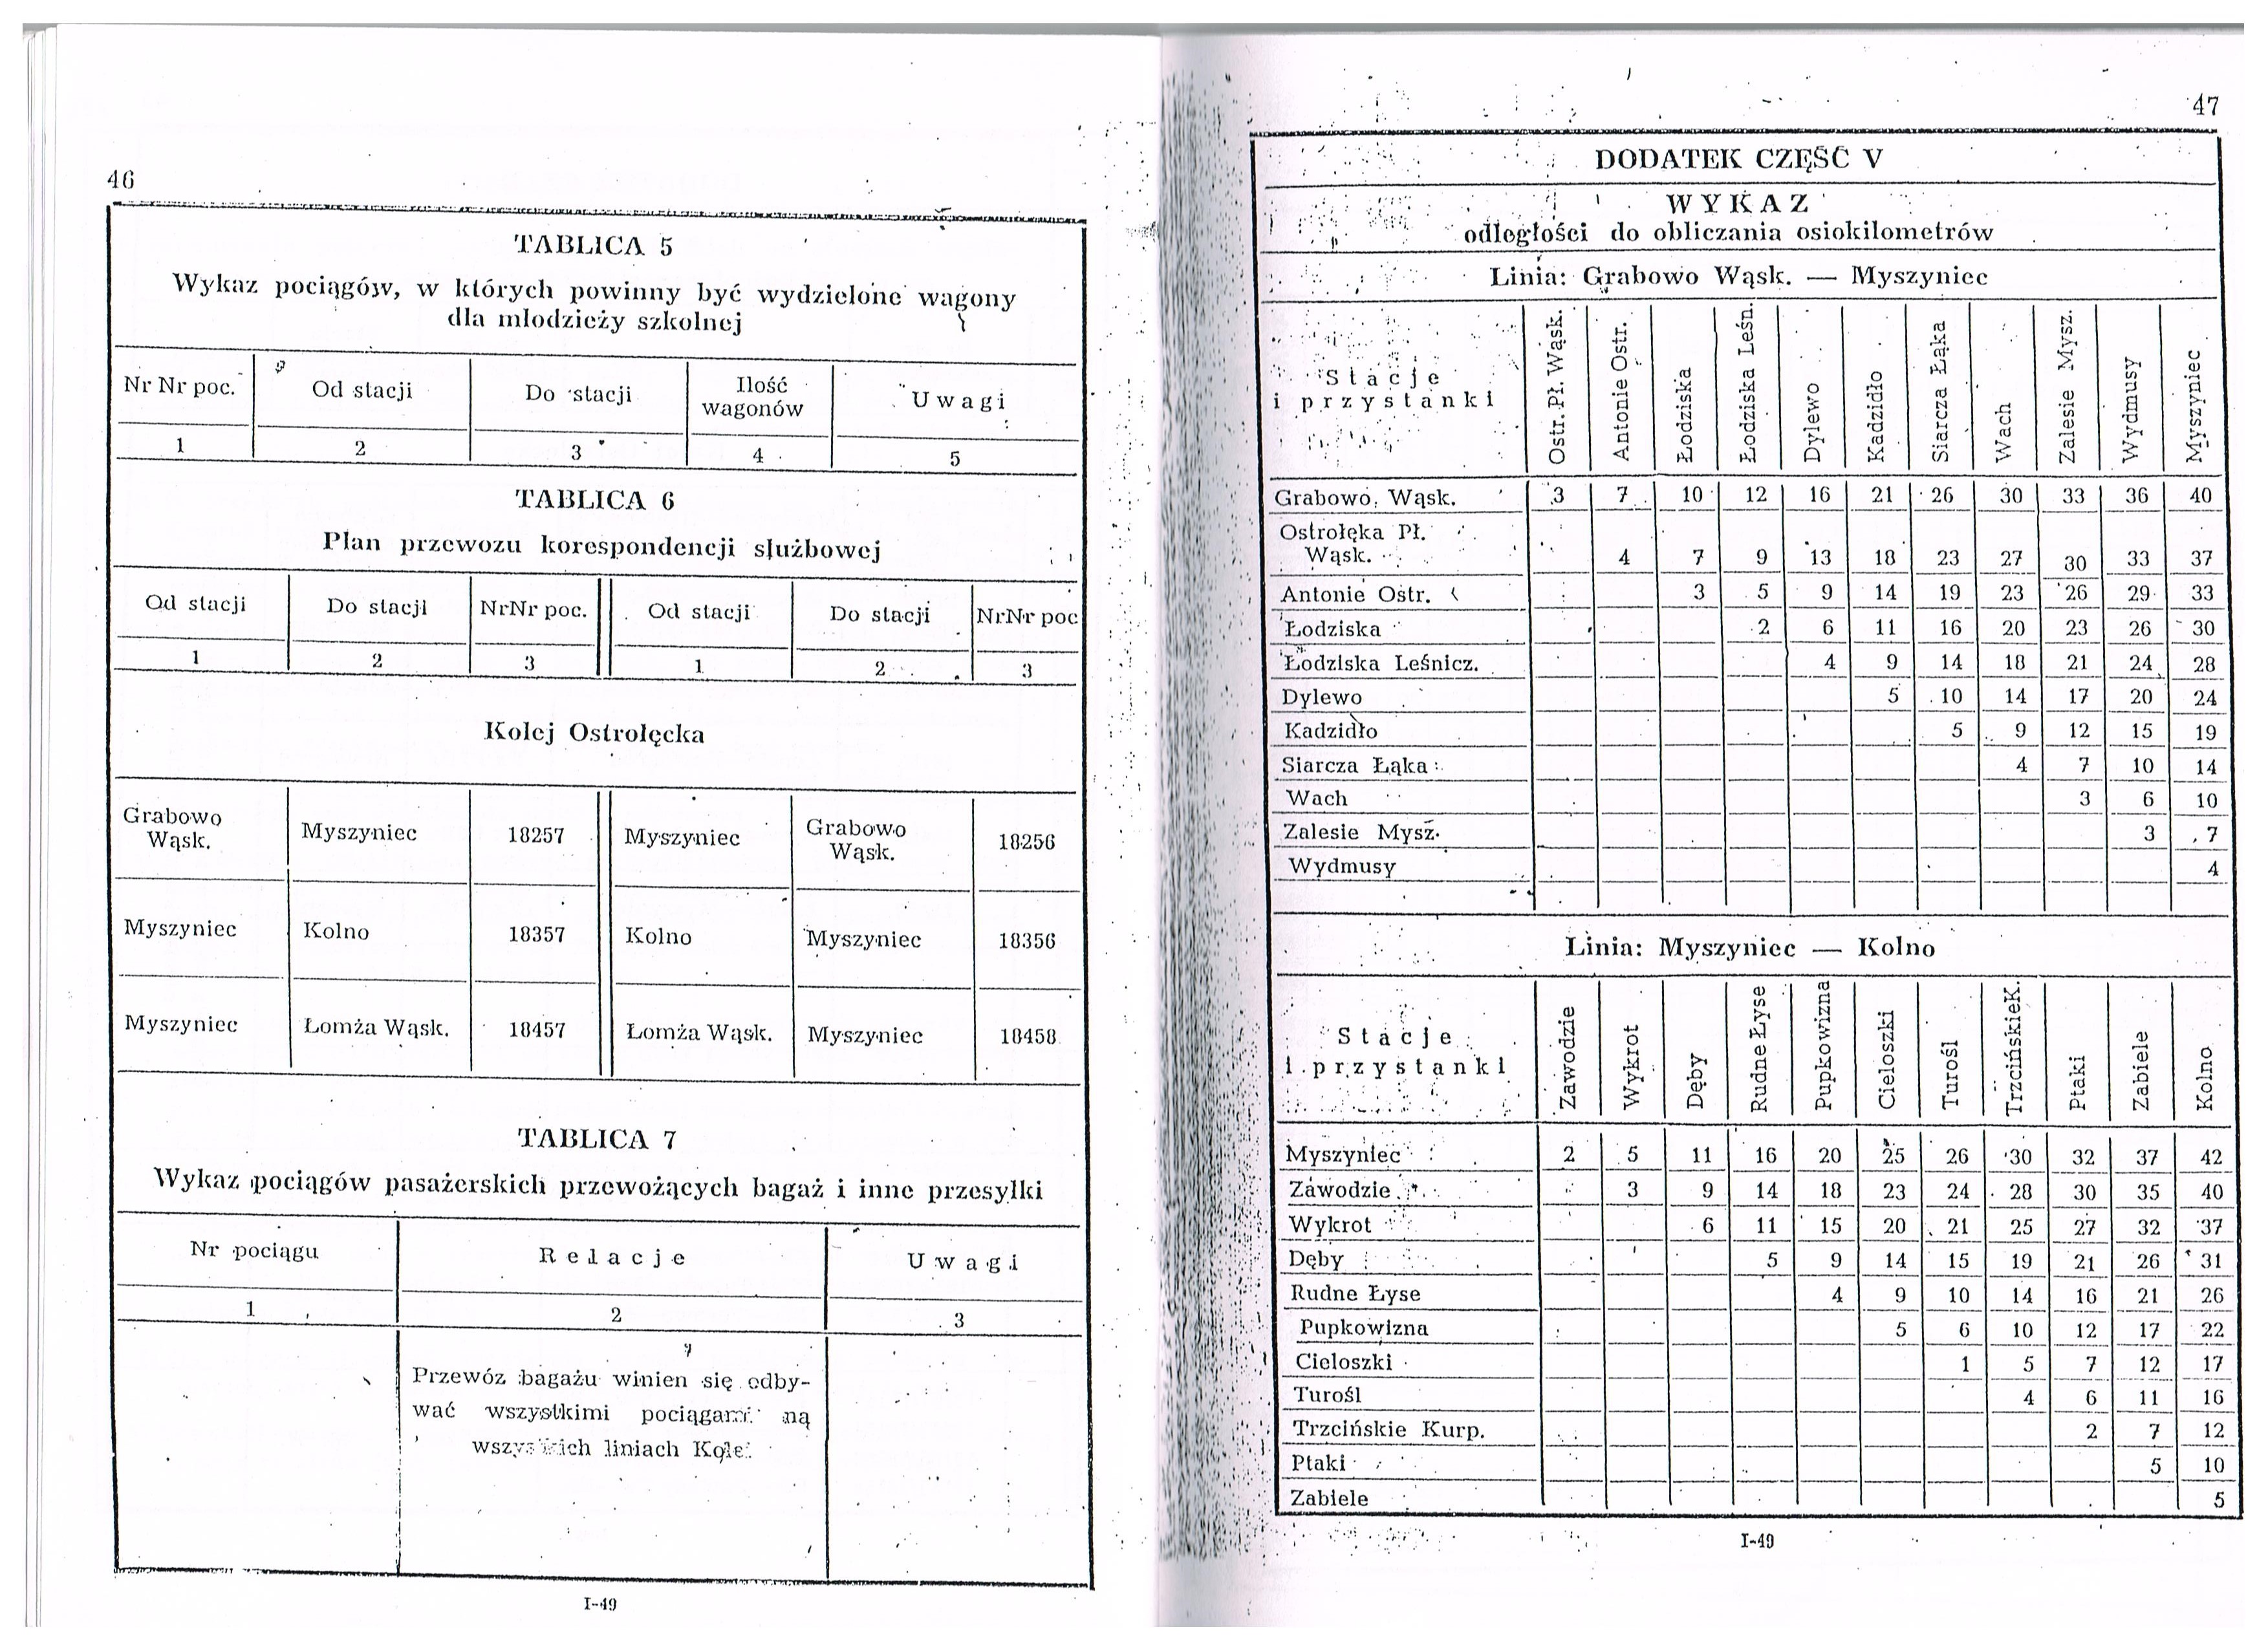 46
TABLICA 5
Wykaz pociągów, w których powinny być wydzielone wagony
dla młodzieży szkolnej
Nr Nr poc. Od stacji Do stacji Ilość wagonów Uwagi
1 2 3 4 5
TABLICA 6
Plan przewozu korespondencji służbowej
Od stacji Do stacji NrNr poc. Od stacji Do stacji NrNr poc
1 2 3 1 2 3
Kolej Ostrołęcka
Grabowo Wąsk. Myszyniec 18257 Myszyniec Grabowo Wąsk. 18256
Myszyniec Kolno 18357 Kolno Myszyniec 18356
Myszyniec Łomża Wąsk. 18457 Łomża Wąsk. Myszyniec 18458
TABLICA 7
Wykaz pociągów pasażerskich przewożących bagaż i inne przesyłki
Nr pociągu Relacje Uwagi
1 2 3
Przewóz bagażu winien się odby-
wać wszystkimi pociągami na
wszystkich liniach Kolei.
I-49
47
DODATEK CZĘŚĆ V
WYKAZ
odległości do obliczania osiokilometrów
Linia: Grabowo Wąsk. — Myszyniec
Stacje i przystanki Ostr. Pł. Wąsk. Antonie Ostr. Łodziska Łodziska Leśn. Dylewo Kadzidło Siarcza Łąka Wach Zalesie Mysz. Wydmusy Myszyniec
Grabowo Wąsk. 3 7 10 12 16 21 26 30 33 36 40
Ostrołęka Pł.
Wąsk. 4 7 9 13 18 23 27 30 33 37
Antonie Ostr. 3 5 9 14 19 23 26 29 33
Łodziska 2 6 11 16 20 23 26 30
Łodziska Leśnicz. 4 9 14 18 21 24 28
Dylewo 5 10 14 17 20 24
Kadzidło 5 9 12 15 19
Siarcza Łąka 4 7 10 14
Wach 3 6 10
Zalesie Mysz. 3 7
Wydmusy 4
Linia: Myszyniec — Kolno
Stacje i przystanki Zawodzie Wykrot Dęby Rudne Łyse Pupkowizna Cieloszki Turośl Trzcińskie K. Ptaki Zabiele Kolno
Myszyniec 2 5 11 16 20 25 26 30 32 37 42
Zawodzie 3 9 14 18 23 24 28 30 35 40
Wykrot 6 11 15 20 21 25 27 32 37
Dęby 5 9 14 15 19 21 26 31
Rudne Łyse 4 9 10 14 16 21 26
Pupkowizna 5 6 10 12 17 22
Cieloszki 1 5 7 12 17
Turośl 4 6 11 16
Trzcińskie Kurp. 2 7 12
Ptaki 5 10
Zabiele 5
I-49